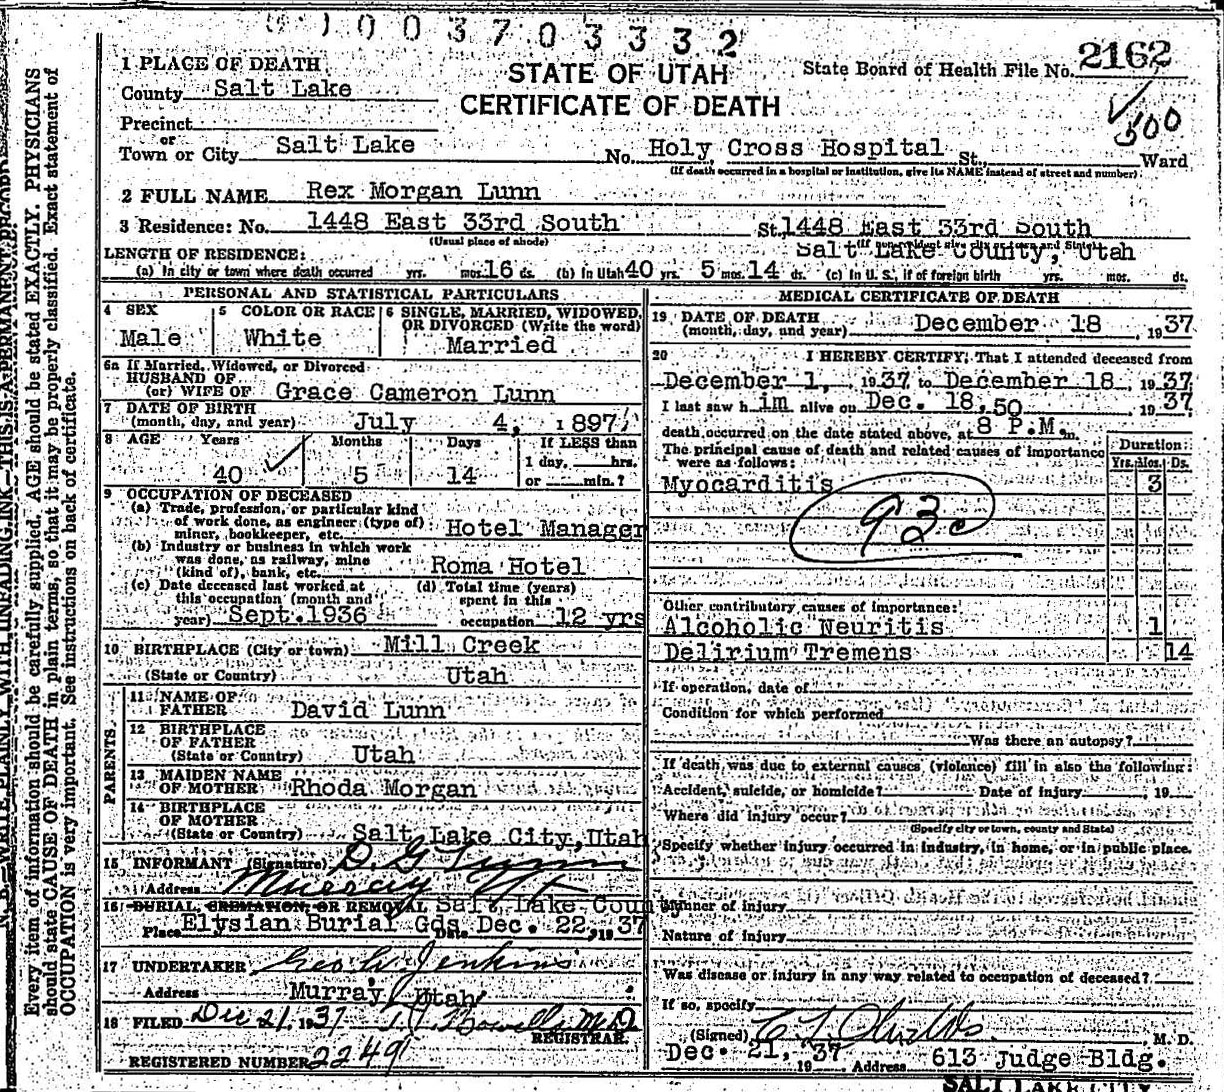 0 1 0 0 3 7 0 3 3 3 2
1 PLACE OF DEATH
STATE OF UTAH
CERTIFICATE OF DEATH
State Board of Health File No. 2162
County Salt Lake
500
Precinct
or
Town or City Salt Lake No. Holy Cross Hospital St., Ward
(If death occurred in a hospital or institution, give its NAME instead of street and number)
2 FULL NAME Rex Morgan Lunn
3 Residence: No. 1448 East 33rd South St. 1448 East 33rd South
(Usual place of abode) (If nonresident give city or town and State)
Salt Lake County, Utah
LENGTH OF RESIDENCE:
(a) In city or town where death occurred yrs. mos. 16 ds. (b) In Utah 40 yrs. 5 mos. 14 ds. (c) In U. S., if of foreign birth yrs. mos. ds.
PERSONAL AND STATISTICAL PARTICULARS
4 SEX
Male
5 COLOR OR RACE
White
6 SINGLE, MARRIED, WIDOWED,
OR DIVORCED (Write the word)
Married
6a If Married, Widowed, or Divorced
HUSBAND OF
(or) WIFE OF Grace Cameron Lunn
7 DATE OF BIRTH
(month, day, and year) July 4, 1897
8 AGE Years Months Days If LESS than
1 day, hrs.
40 5 14 or min.?
9 OCCUPATION OF DECEASED
(a) Trade, profession, or particular kind
of work done, as engineer (type of)
miner, bookkeeper, etc. Hotel Manager
(b) Industry or business in which work
was done, as railway, mine
(kind of), bank, etc. Roma Hotel
(c) Date deceased last worked at
this occupation (month and
year) Sept. 1936
(d) Total time (years)
spent in this
occupation 12 yrs
10 BIRTHPLACE (City or town) Mill Creek
(State or Country) Utah
PARENTS
11 NAME OF
FATHER David Lunn
12 BIRTHPLACE
OF FATHER
(State or Country) Utah
13 MAIDEN NAME
OF MOTHER Rhoda Morgan
14 BIRTHPLACE
OF MOTHER
(State or Country) Salt Lake City, Utah
15 INFORMANT (Signature) D. G. Lunn
Address Murray Ut
16 BURIAL, CREMATION, OR REMOVAL Salt Lake Coun
Place Elysian Burial Gds Date Dec. 22, 19 37
17 UNDERTAKER Geo. W. Jenkins
Address Murray, Utah
18 FILED Dec 21, 1937 M D
REGISTRAR.
REGISTERED NUMBER 2249
MEDICAL CERTIFICATE OF DEATH
19 DATE OF DEATH
(month, day, and year) December 18, 1937
20 I HEREBY CERTIFY, That I attended deceased from
December 1, 1937 to December 18, 1937
I last saw h im alive on Dec. 18, 1937
50
death occurred on the date stated above, at 8 P.M. m.
The principal cause of death and related causes of importance
were as follows:
Duration:
Yrs. Mos. Ds.
Myocarditis 3
93c
Other contributory causes of importance:
Alcoholic Neuritis 1
Delirium Tremens 14
If operation, date of
Condition for which performed
Was there an autopsy?
If death was due to external causes (violence) fill in also the following:
Accident, suicide, or homicide? Date of injury , 19
Where did injury occur?
(Specify city or town, county and State)
Specify whether injury occurred in industry, in home, or in public place.
Manner of injury
Nature of injury
Was disease or injury in any way related to occupation of deceased?
If so, specify
(Signed) , M. D.
Dec. 21, 19 37 Address 613 Judge Bldg.
SALT LAKE CITY
N. B. WRITE PLAINLY WITH UNFADING INK—THIS IS A PERMANENT RECORD.
Every item of information should be carefully supplied. AGE should be stated EXACTLY. PHYSICIANS
should state CAUSE OF DEATH in plain terms, so that it may be properly classified. Exact statement of
OCCUPATION is very important. See instructions on back of certificate.